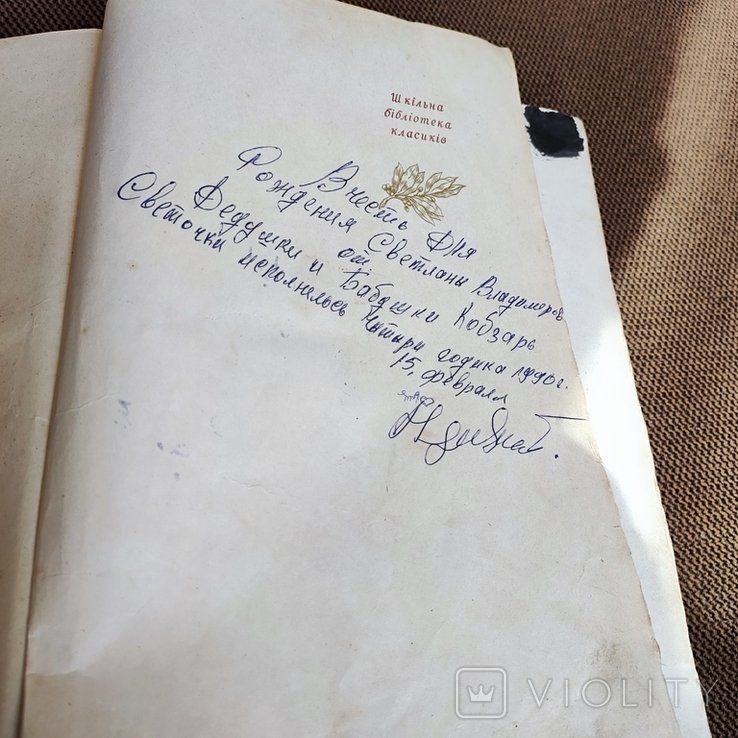 Шкільна
бібліотека
класиків
В честь Дня
Рождения Светланы Владимеров
от
Дедушки и Бабушки Кобзарь
Светочки исполнилось Читыри годика 1990г.
15, февраля
VIOLITY